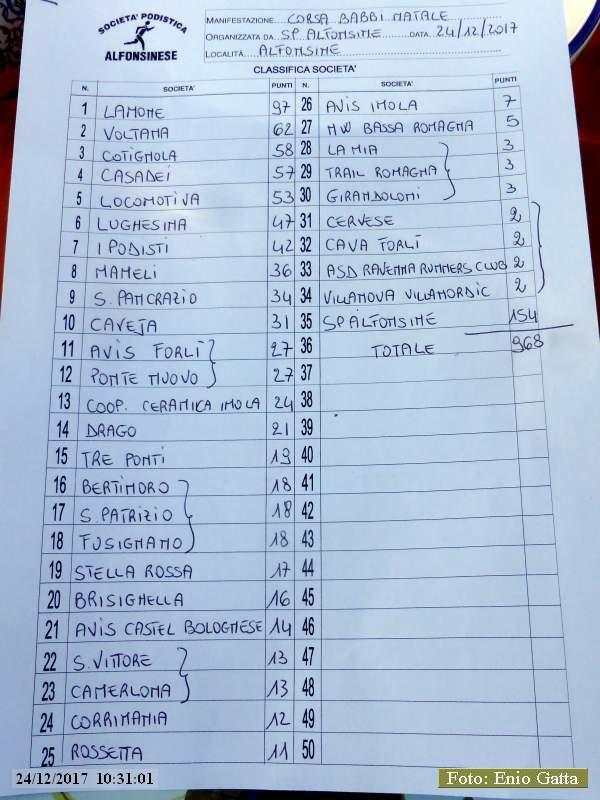 SOCIETA' PODISTICA
ALFONSINESE
MANIFESTAZIONE CORSA BABBI NATALE
ORGANIZZATA DA SP. ALFONSINE DATA 24/12/2017
LOCALITÀ ALFONSINE
CLASSIFICA SOCIETA'
N. SOCIETA' PUNTI N. SOCIETA' PUNTI
1 LAMONE 97 26 AVIS IMOLA 7
2 VOLTANA 62 27 NW BASSA ROMAGNA 5
3 COTIGNOLA 58 28 LA MIA 3
4 CASADEI 57 29 TRAIL ROMAGNA 3
5 LOCOMOTIVA 53 30 GIRANDOLONI 3
6 LUGHESINA 47 31 CERVESE 2
7 I PODISTI 42 32 CAVA FORLÌ 2
8 MAMELI 36 33 ASD RAVENNA RUNNERS CLUB 2
9 S. PANCRAZIO 34 34 VILLANOVA VILLANORDIC 2
10 CAVEJA 31 35 SP ALFONSINE 154
11 AVIS FORLÌ 27 36 TOTALE 968
12 PONTE NUOVO 27 37
13 COOP. CERAMICA IMOLA 24 38
14 DRAGO 21 39
15 TRE PONTI 19 40
16 BERTINORO 18 41
17 S. PATRIZIO 18 42
18 FUSIGNANO 18 43
19 STELLA ROSSA 17 44
20 BRISIGHELLA 16 45
21 AVIS CASTEL BOLOGNESE 14 46
22 S. VITTORE 13 47
23 CAMERLONA 13 48
24 CORRIMANIA 12 49
25 ROSSETTA 11 50
24/12/2017 10:31:01
Foto: Enio Gatta